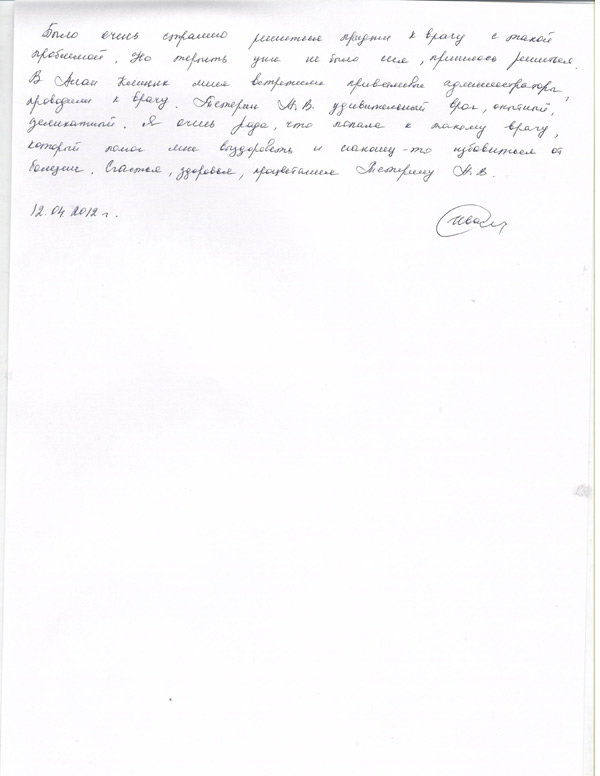 Было очень страшно решиться придти к врачу с такой
проблемой. Но терпеть уже не было сил, пришлось решиться.
В Алан Клиник меня встретили приветливые администраторы,
проводили к врачу. А.В. удивительный врач, опытный,
деликатный. Я очень рада, что попала к такому врачу,
который помог мне выздороветь и наконец-то избавиться от
болезни. Счастья, здоровья, процветания А.В.
12.04.2012 г.